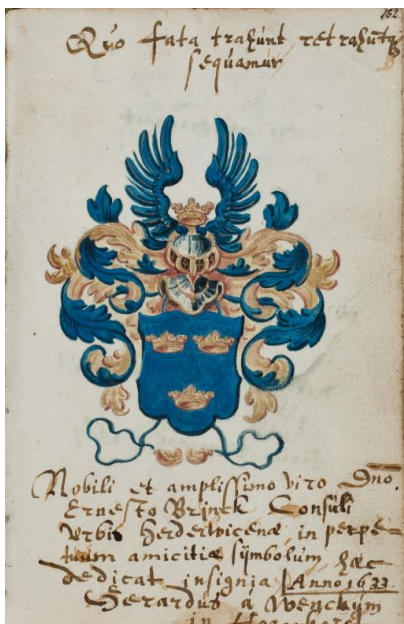 162
Quo fata trahunt retrahuntq
sequamur
Nobili et amplissimo viro Dno.
Ernesto Brinck Consuli
Urbis Herderwicenæ in perpe-
tuum amicitiæ sÿmbolum hæc
dedicat insignia Anno 1633
Gerardus à
in